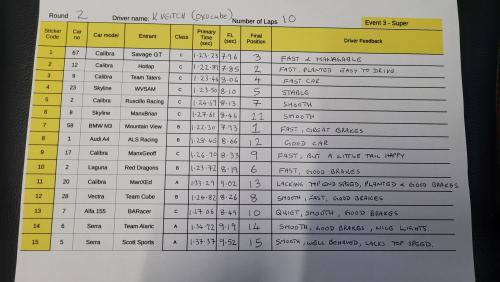 Round 2 Driver name: K VEITCH (OXOCUBE) Number of Laps 10 Event 3 - Super
Sticker Code Car no Car model Entrant Class Primary Time (sec) FL (sec) Final Position Driver Feedback
1 67 Calibra Savage GT C 1-23-23 7-96 3 FAST & MANAGABLE
2 12 Calibra Hotlap C 1-22-81 7-85 2 FAST, PLANTED EASY TO DRIVE
3 9 Calibra Team Taters C 1-23-46 8-06 4 FAST CAR
4 23 Skyline WVSAM C 1-23-50 8-10 5 STABLE
5 2 Calibra Ruscillo Racing C 1-24-67 8-13 7 SMOOTH
6 8 Skyline ManxBrian C 1-27-61 8-46 11 SMOOTH
7 58 BMW M3 Mountain View B 1-22-30 7-93 1 FAST, GREAT BRAKES
8 1 Audi A4 ALS Racing B 1-28-45 8-66 12 GOOD CAR
9 17 Calibra ManxGeoff C 1-26-70 8-33 9 FAST, BUT A LITTLE TAIL HAPPY
10 2 Laguna Red Dragons B 1-23-72 8-19 6 FAST, GOOD BRAKES
11 20 Calibra ManXEd A 1-33-29 9-02 13 LACKING TOP END SPEED, PLANTED & GOOD BRAKES
12 28 Vectra Team Cube B 1-24-82 8-26 8 SMOOTH, FAST, GOOD BRAKES
13 7 Alfa 155 BARacer C 1-27-06 8-49 10 QUIET, SMOOTH, GOOD BRAKES
14 6 Serra Team Alaric A 1-34-92 9-19 14 SMOOTH, GOOD BRAKES, NICE LIGHTS.
15 5 Serra Scott Sports A 1-37-37 9-52 15 SMOOTH, WELL BEHAVED, LACKS TOP SPEED.